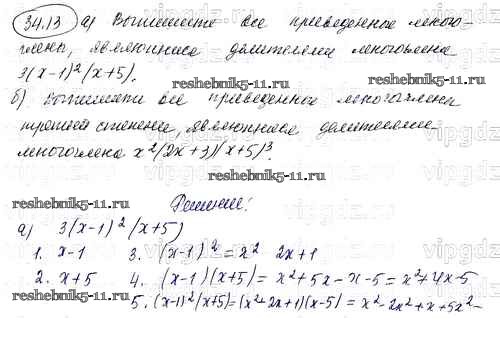 34.13 а) Выпишите все приведенные много-
члены, являющиеся делителями многочлена
3(x-1)²(x+5).
reshebnik5-11.ru
reshebnik5-11.ru
б) Выпишите все приведенные многочлены
третьей степени, являющиеся делителями
многочлена x²(2x+3)(x+5)³.
reshebnik5-11.ru
Решение:
а) 3(x-1)²(x+5)
reshebnik5-11.ru
1. x-1 3. (x-1)² = x² 2x+1
2. x+5 4. (x-1)(x+5) = x²+5x-x-5 = x²+4x-5
reshebnik5-11.ru
5. (x-1)²(x+5) = (x²+2x+1)(x-5) = x²-2x²+x+5x²-
vipgdz